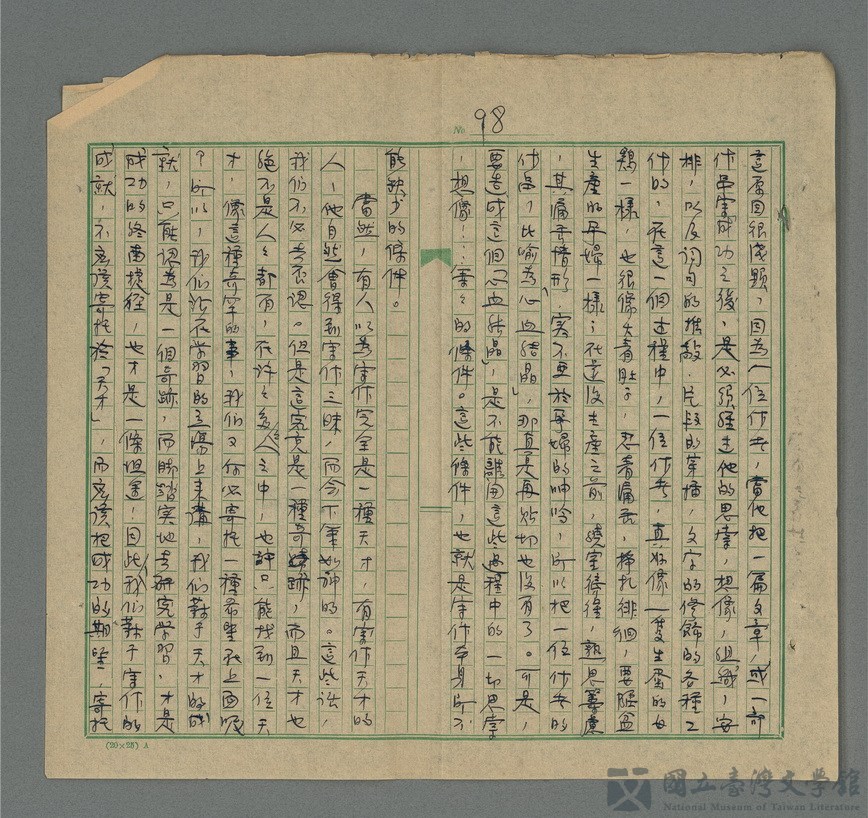 No 98
這原因很淺顯，因為一位作者，當他把一篇文章，或一部
作品寫成功之後，是必須經過他的思索，想像，組織，安
排，以及詞句的推敲．片段的穿插，文字的修飾的各種工
作的，在這一個過程中，一位作者，真好像一隻生蛋的母
鷄一樣，也很像大着肚子，忍着痛苦，掙扎徘徊，要臨盆
生產的孕婦一樣；在還沒生產之前，繞室徬徨，熟思籌慮
，其痛苦情形．實不亞於孕婦的呻吟，所以把一位作者的
作品，比喻為「心血結晶」，那真是再貼切也沒有了。可是，
要造成這個「心血結晶」，是不能離開這些過程中的一切思索
，想像！……等々的條件。這些條件，也就是寫作本身所不
能缺少的條件。
當然，有人以為寫作完全是一種天才，有寫作天才的
人，他自然會得到寫作三昧，而令下筆如神的。這些話，
我們不必去否認。但是這究竟是一種奇蹟，而且天才也
絕不是人々都有，在許々多人之中，也許只能找到一位天
才，像這種奇罕的事，我們又何必寄托一種希望在上面呢
？所以，我們站在學習的立場上來講，我們對于天才的成
就，只能認為是一個奇跡，而腳踏實地去研究學習，才是
成功的終南捷徑，也才是一條坦途！因此，我們對于寫作的
成就，不應該寄托於「天才」，而應該把成功的期望，寄托
(20×25) A
國立臺灣文學館
National Museum of Taiwan Literature